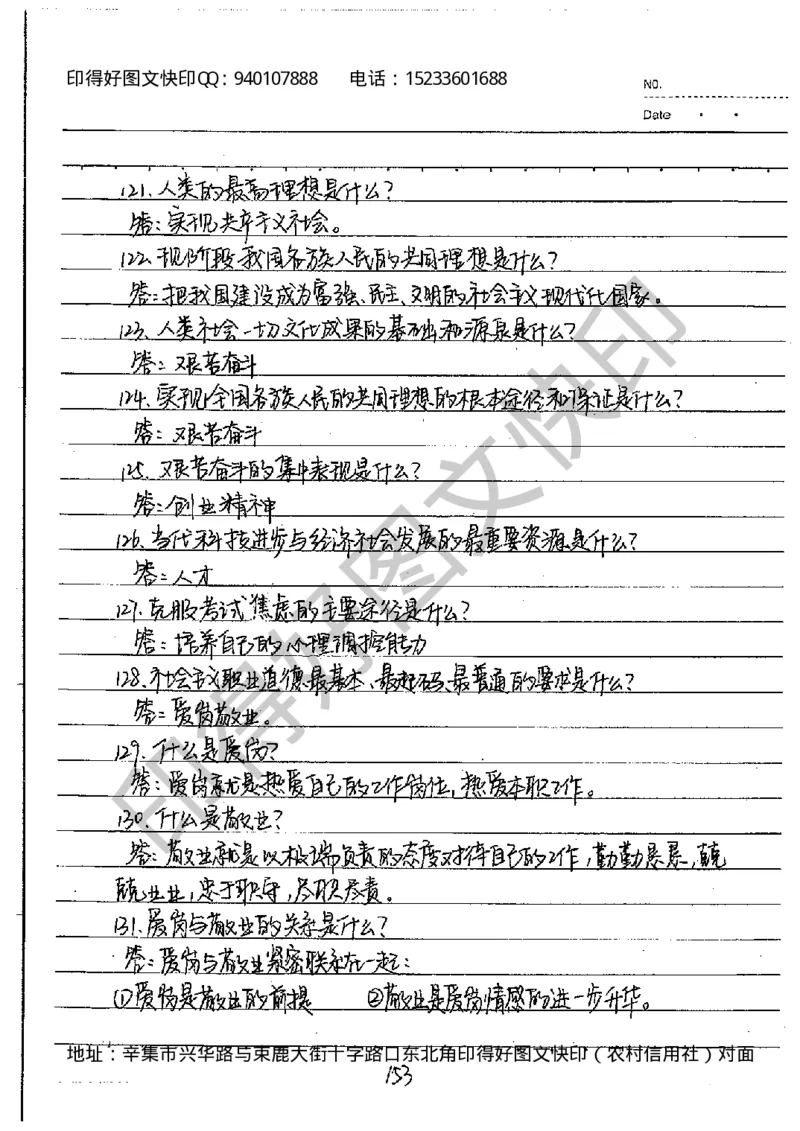 印得好图文快印QQ：940107888 电话：15233601688
NO.
Date
121. 人类的最高理想是什么？
答：实现共产主义社会。
122. 现阶段我国各族人民的共同理想是什么？
答：把我国建设成为富强、民主、文明的社会主义现代化国家。
123. 人类社会一切文化成果的基础和源泉是什么？
答：艰苦奋斗
124. 实现全国各族人民的共同理想的根本途径和保证是什么？
答：艰苦奋斗
125. 艰苦奋斗的集中表现是什么？
答：创业精神
126. 当代科技进步与经济社会发展的最重要资源是什么？
答：人才
127. 克服考试焦虑的主要途径是什么？
答：培养自己的心理调控能力
128. 社会主义职业道德最基本、最起码、最普通的要求是什么？
答：爱岗敬业。
129. 什么是爱岗？
答：爱岗就是热爱自己的工作岗位，热爱本职工作。
130. 什么是敬业？
答：敬业就是以极端负责的态度对待自己的工作，勤勤恳恳，兢
兢业业，忠于职守，尽职尽责。
131. 爱岗与敬业的关系是什么？
答：爱岗与敬业紧密联系在一起：
①爱岗是敬业的前提 ②敬业是爱岗情感的进一步升华。
地址：辛集市兴华路与束鹿大街十字路口东北角印得好图文快印（农村信用社）对面
153
印得好图文快印